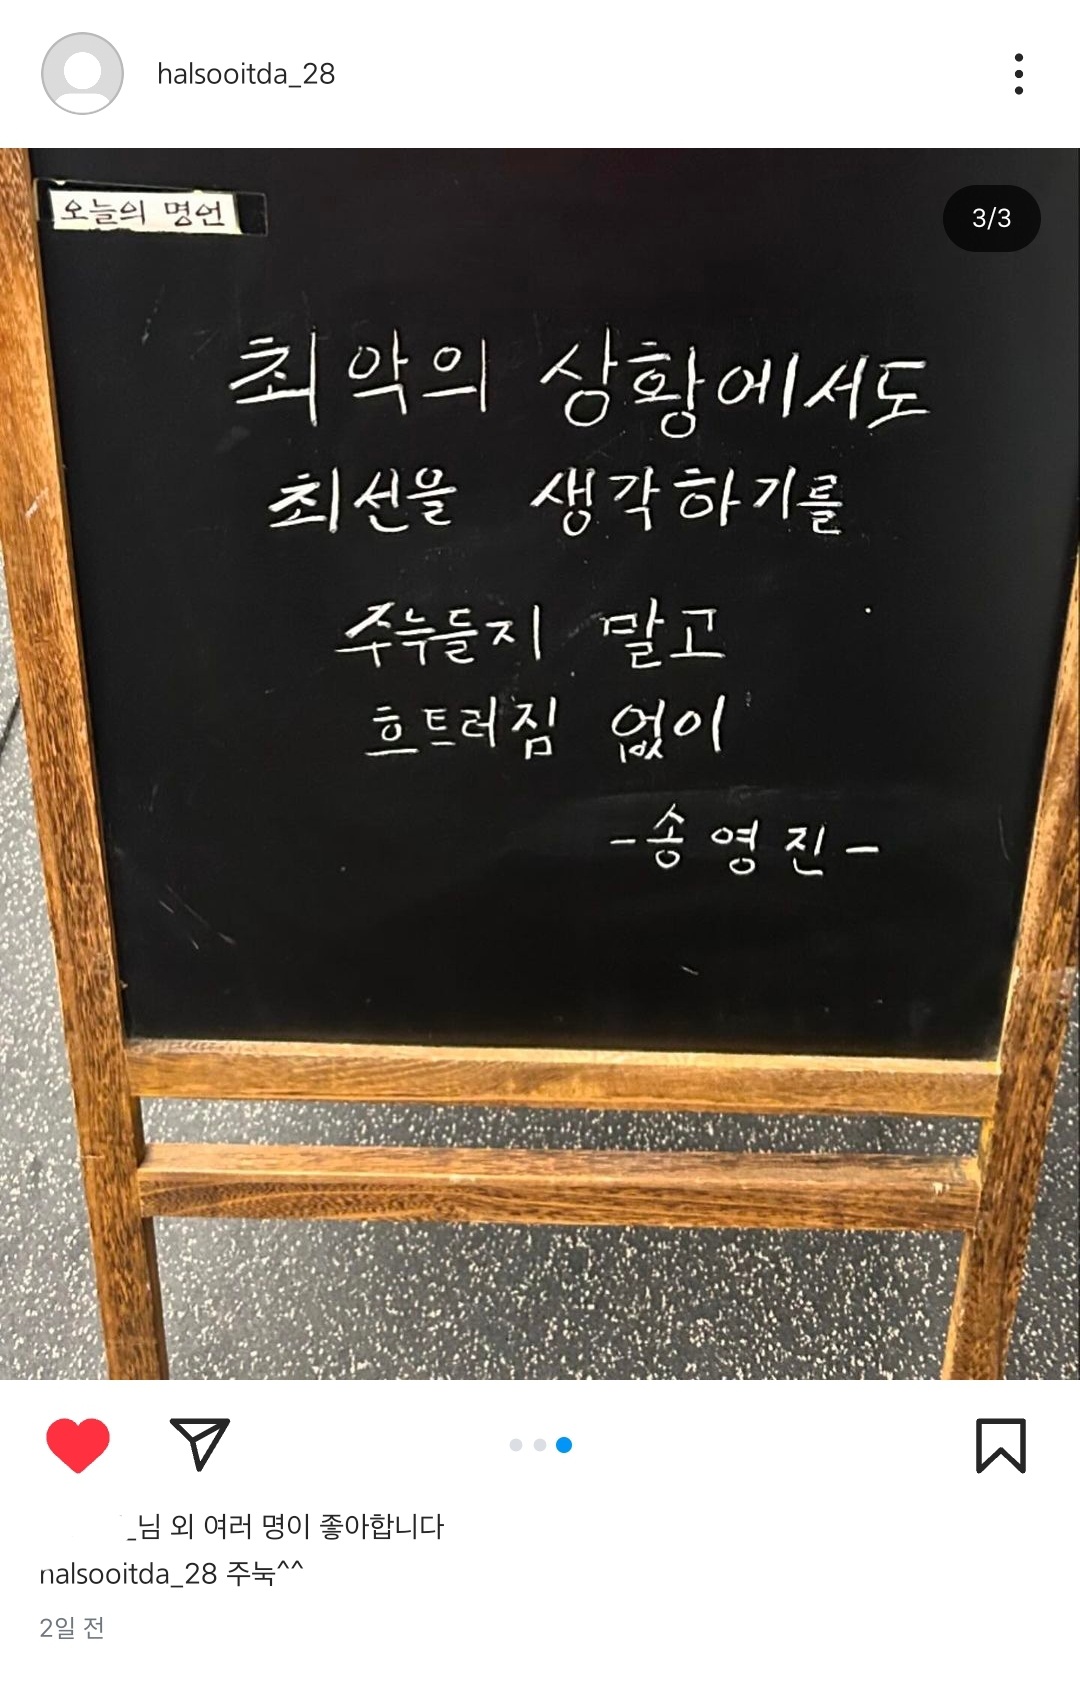 halsooitda_28
오늘의 명언
3/3
최악의 상황에서도
최선을 생각하기를
주눅들지 말고
흐트러짐 없이
-송영진-
_님 외 여러 명이 좋아합니다
halsooitda_28 주눅^^
2일 전